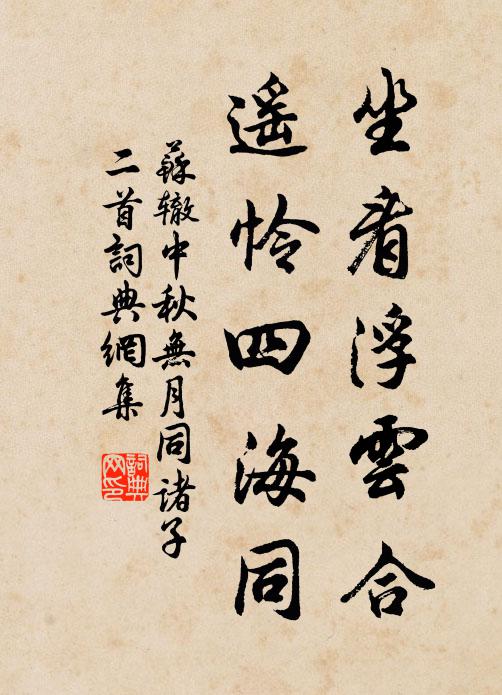 坐看浮雲合
遥怜四海同
蘇轍中秋無月同諸子
二首詞典網集
詞典
网印